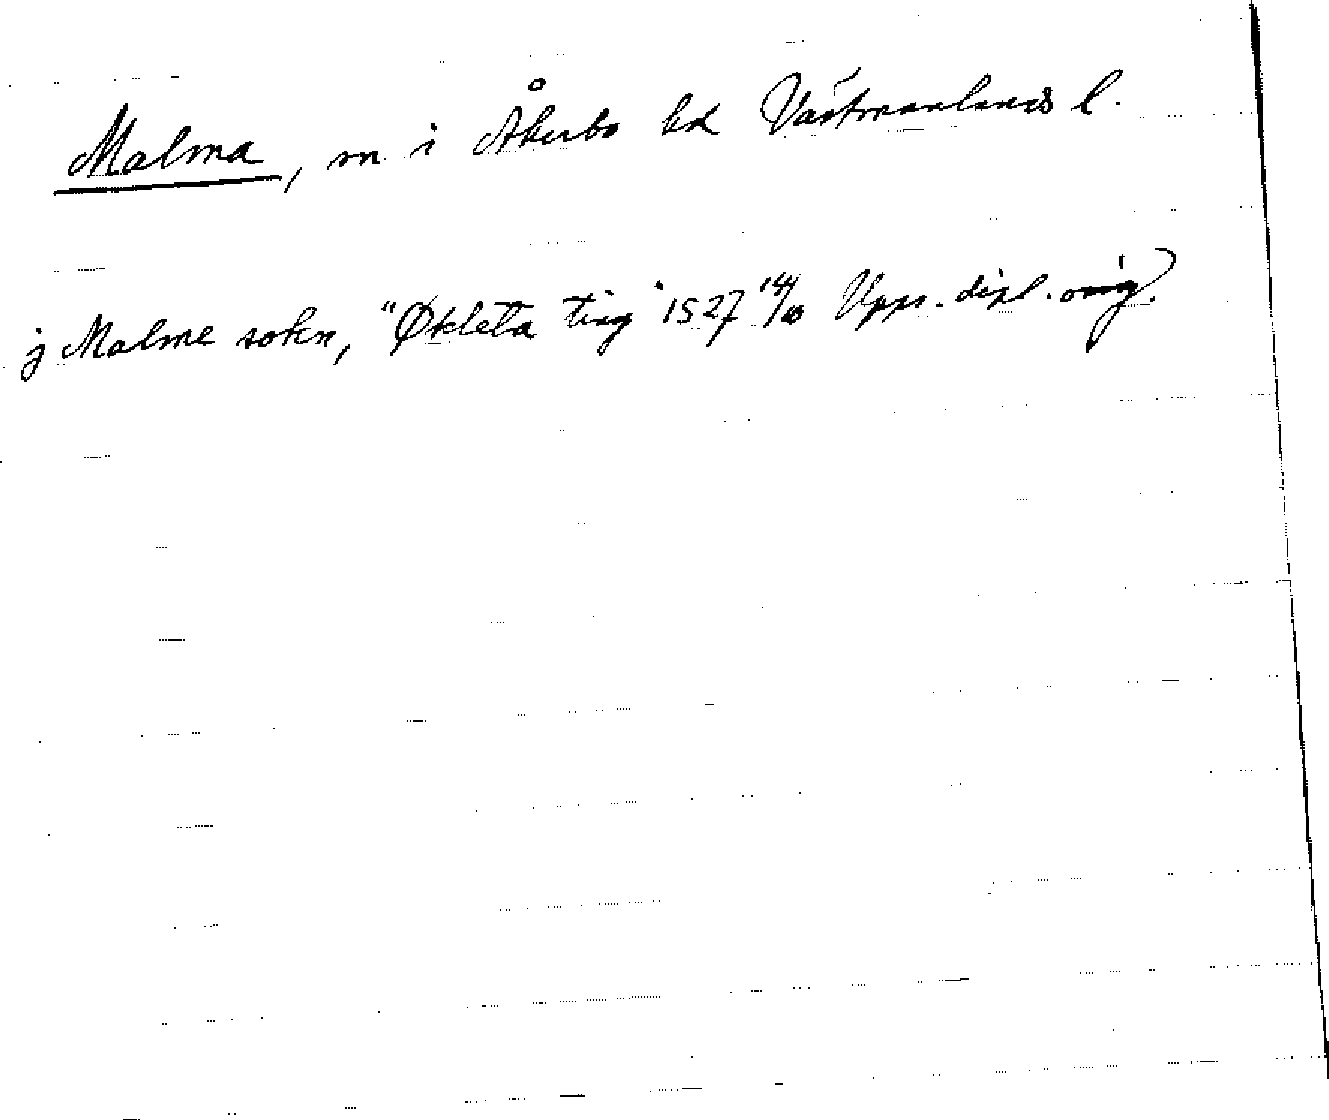 Malma, sn i Åkerbo hd Västmanlands l.
j Malme sokn, "Økleta ting" 1527 14/10 Upps. dipl. orig.